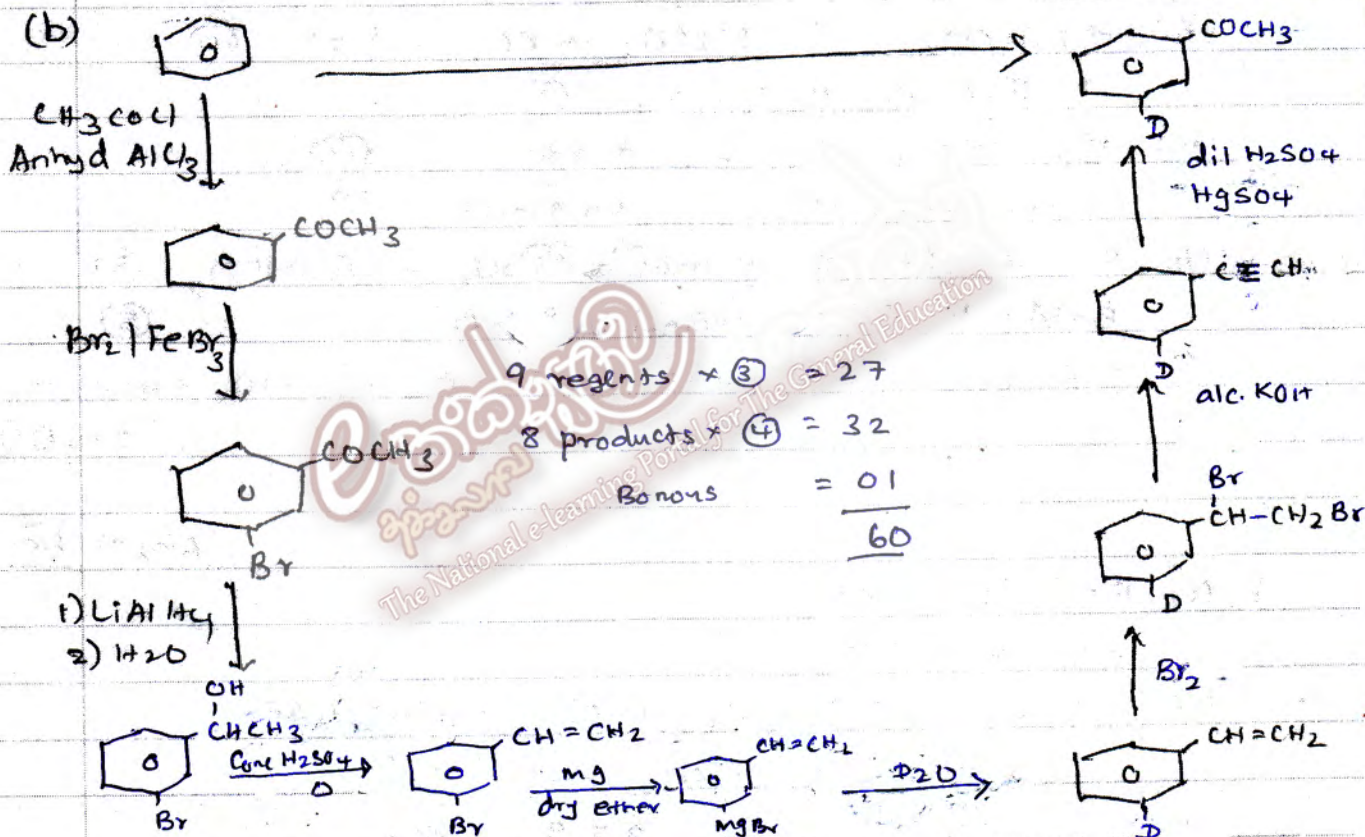 (b)
CH3COCl
Anhyd AlCl3
COCH3
Br2 | FeBr3
COCH3
Br
1) LiAlH4
2) H2O
OH
CHCH3
Br
Conc H2SO4
CH=CH2
Br
mg
dry ether
CH=CH2
MgBr
D2O
CH=CH2
D
Br2
Br
CH-CH2Br
D
alc. KOH
C≡CH
D
dil H2SO4
HgSO4
COCH3
D
9 regents × ③ = 27
8 products × ④ = 32
Bonous = 01
60
The National e-learning Portal for The General Education